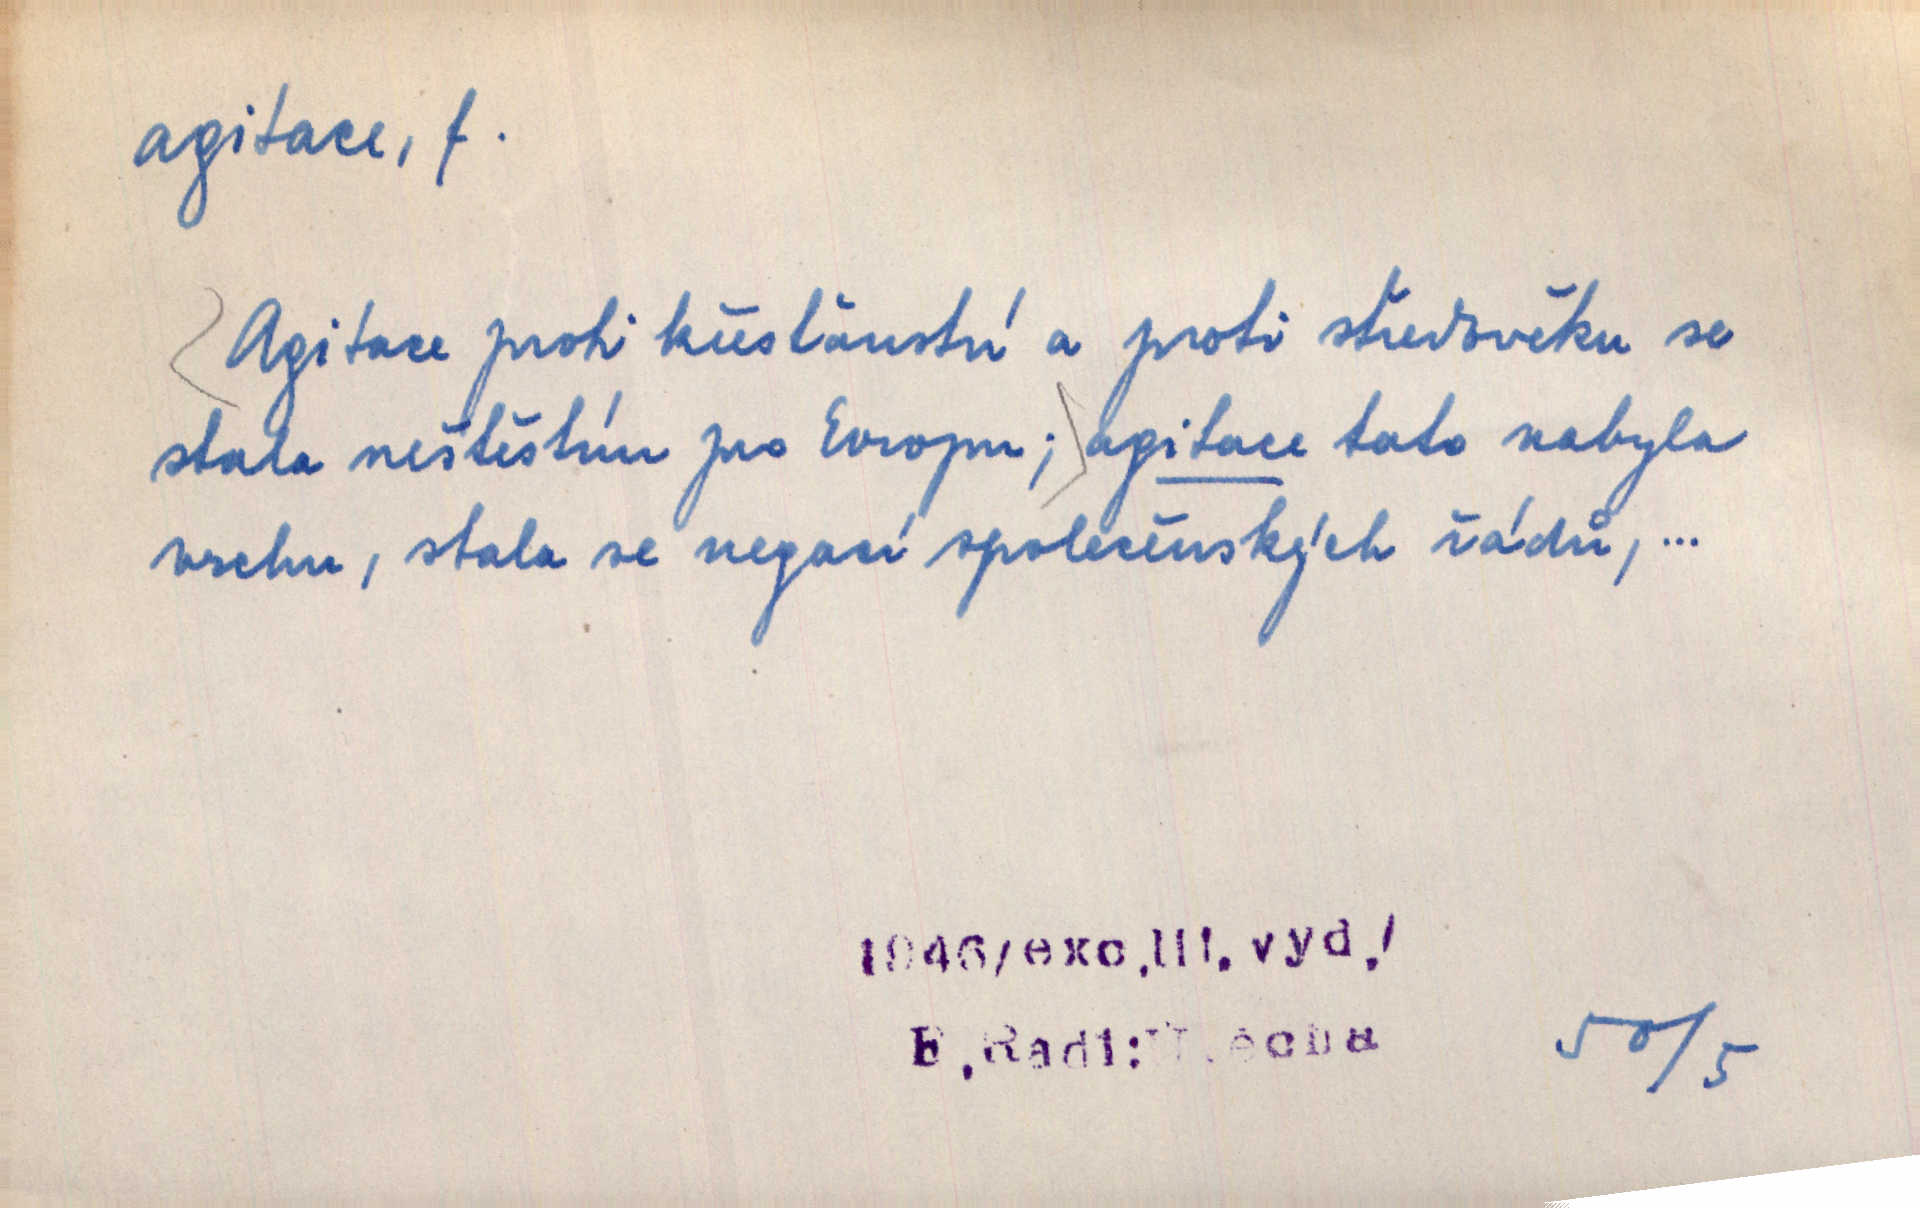 agitace, f.
Agitace proti křesťanství a proti středověku se
stala neštěstím pro Evropu; agitace tato nabyla
vrchu, stala se negací společenských řádů, ...
1946/exc.III.vyd./
E.Radl:
50/5